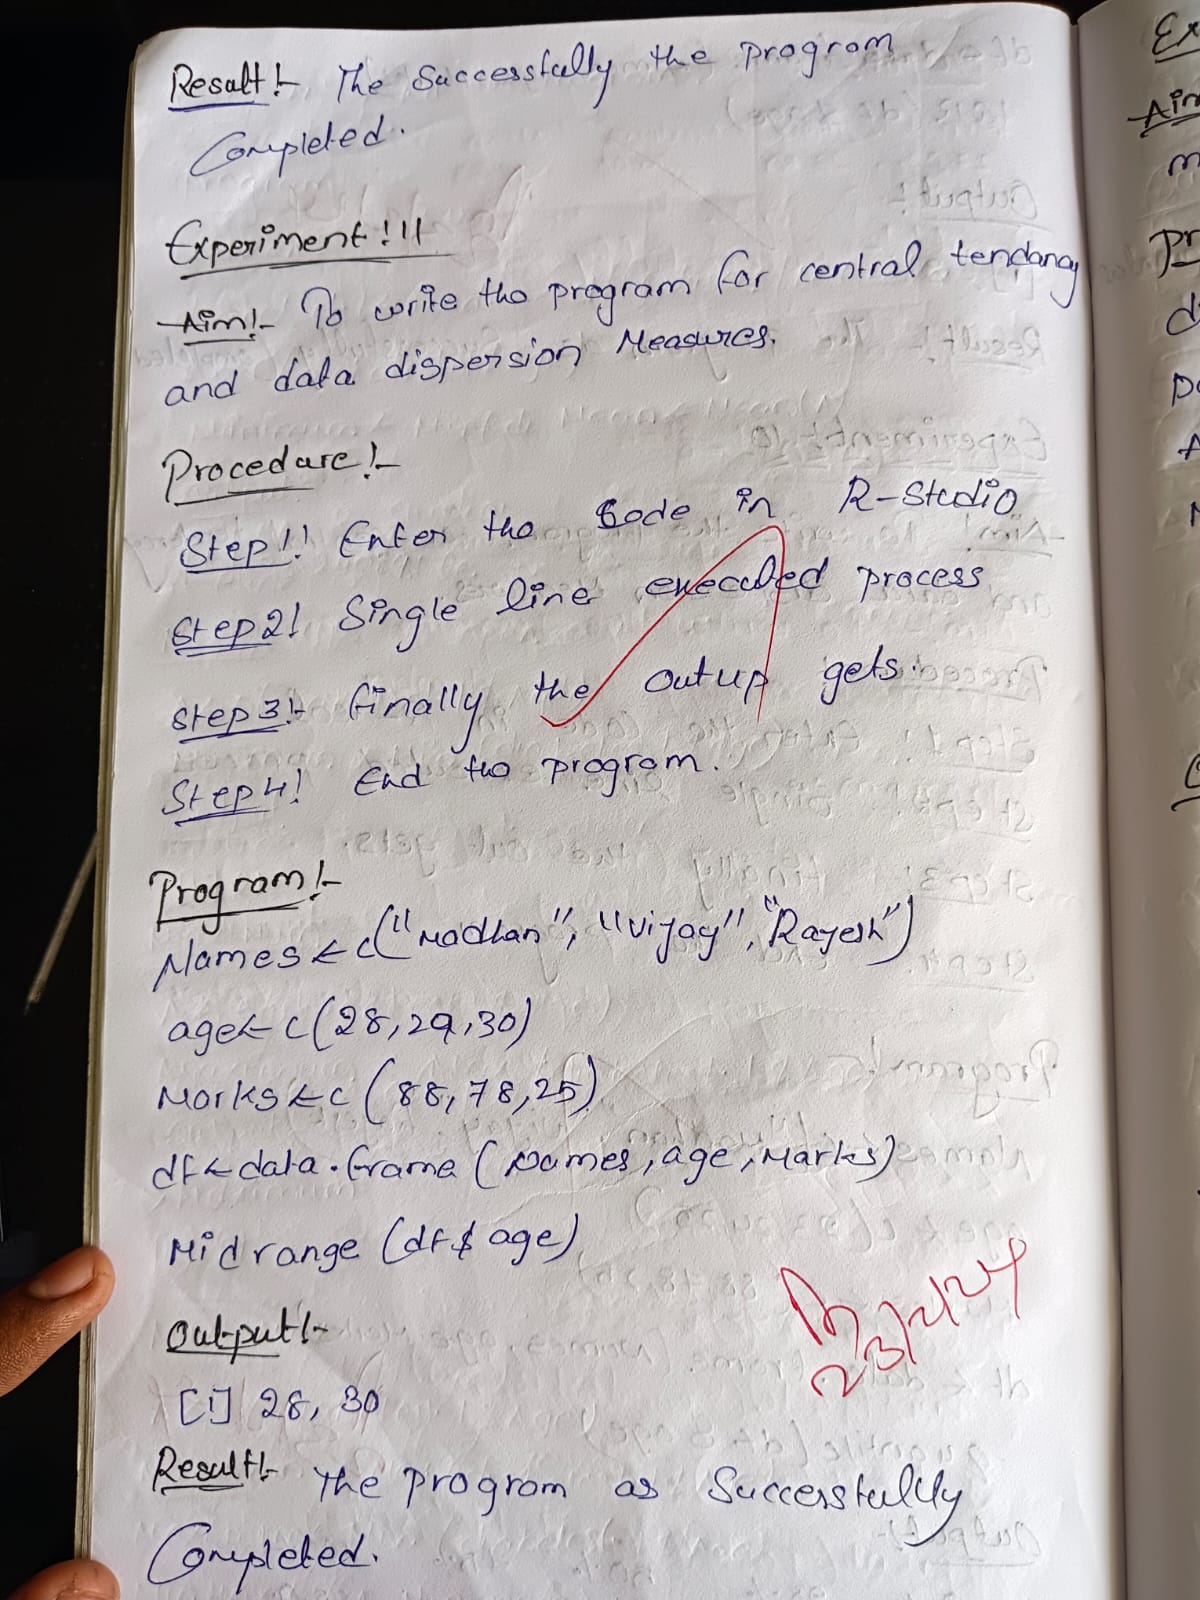 Result:- The Successfully the program
Completed.
Experiment: 11
Aim:- To write the program for central tendancy
and data dispersion Measures.
Procedure:-
Step1:- Enter the Code in R-Studio
Step2: Single line executed process
Step3:- finally the outup gets.
Step4: End the program.
Program:-
Names <- c("Madhan", "vijay", "Rajesh")
age <- c(28,29,30)
Marks <- c(88,78,25)
df <- data.frame (Names, age, Marks)
Midrange (df$age)
Output:-
[1] 28, 30
23/2/24
Result:- The program as Successfully
Completed.
Ex
Aim
m
Pr
d